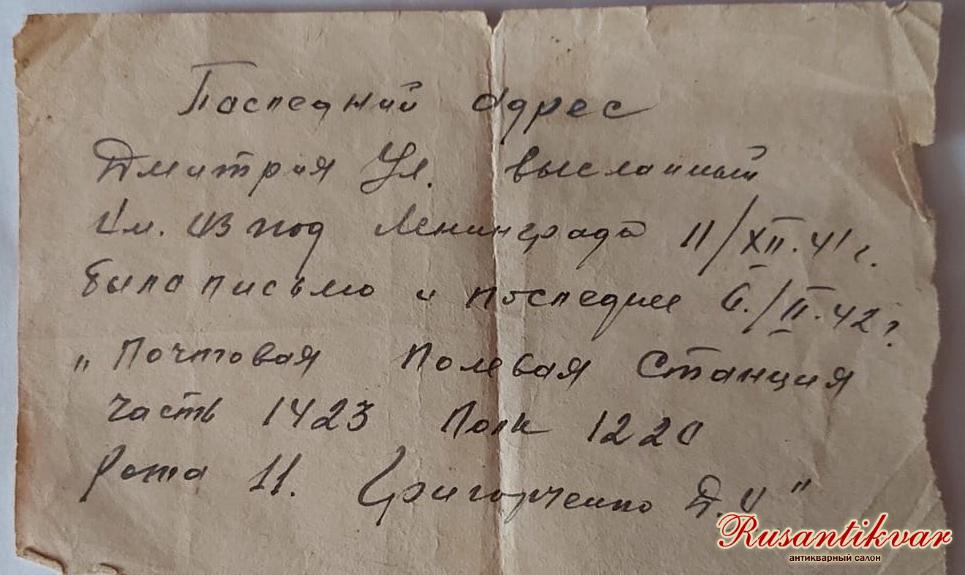 Паспедний адрес
Дмитрия Ул. высланный
Им. из под Ленинграда 11/XII.41 г.
была письмо и последнее 6./II.42 г
„Почтовая Полевая Станция
часть 1423 Полк 1220
рота 11. Григорченко Д.И"
Rusantikvar
антикварный салон